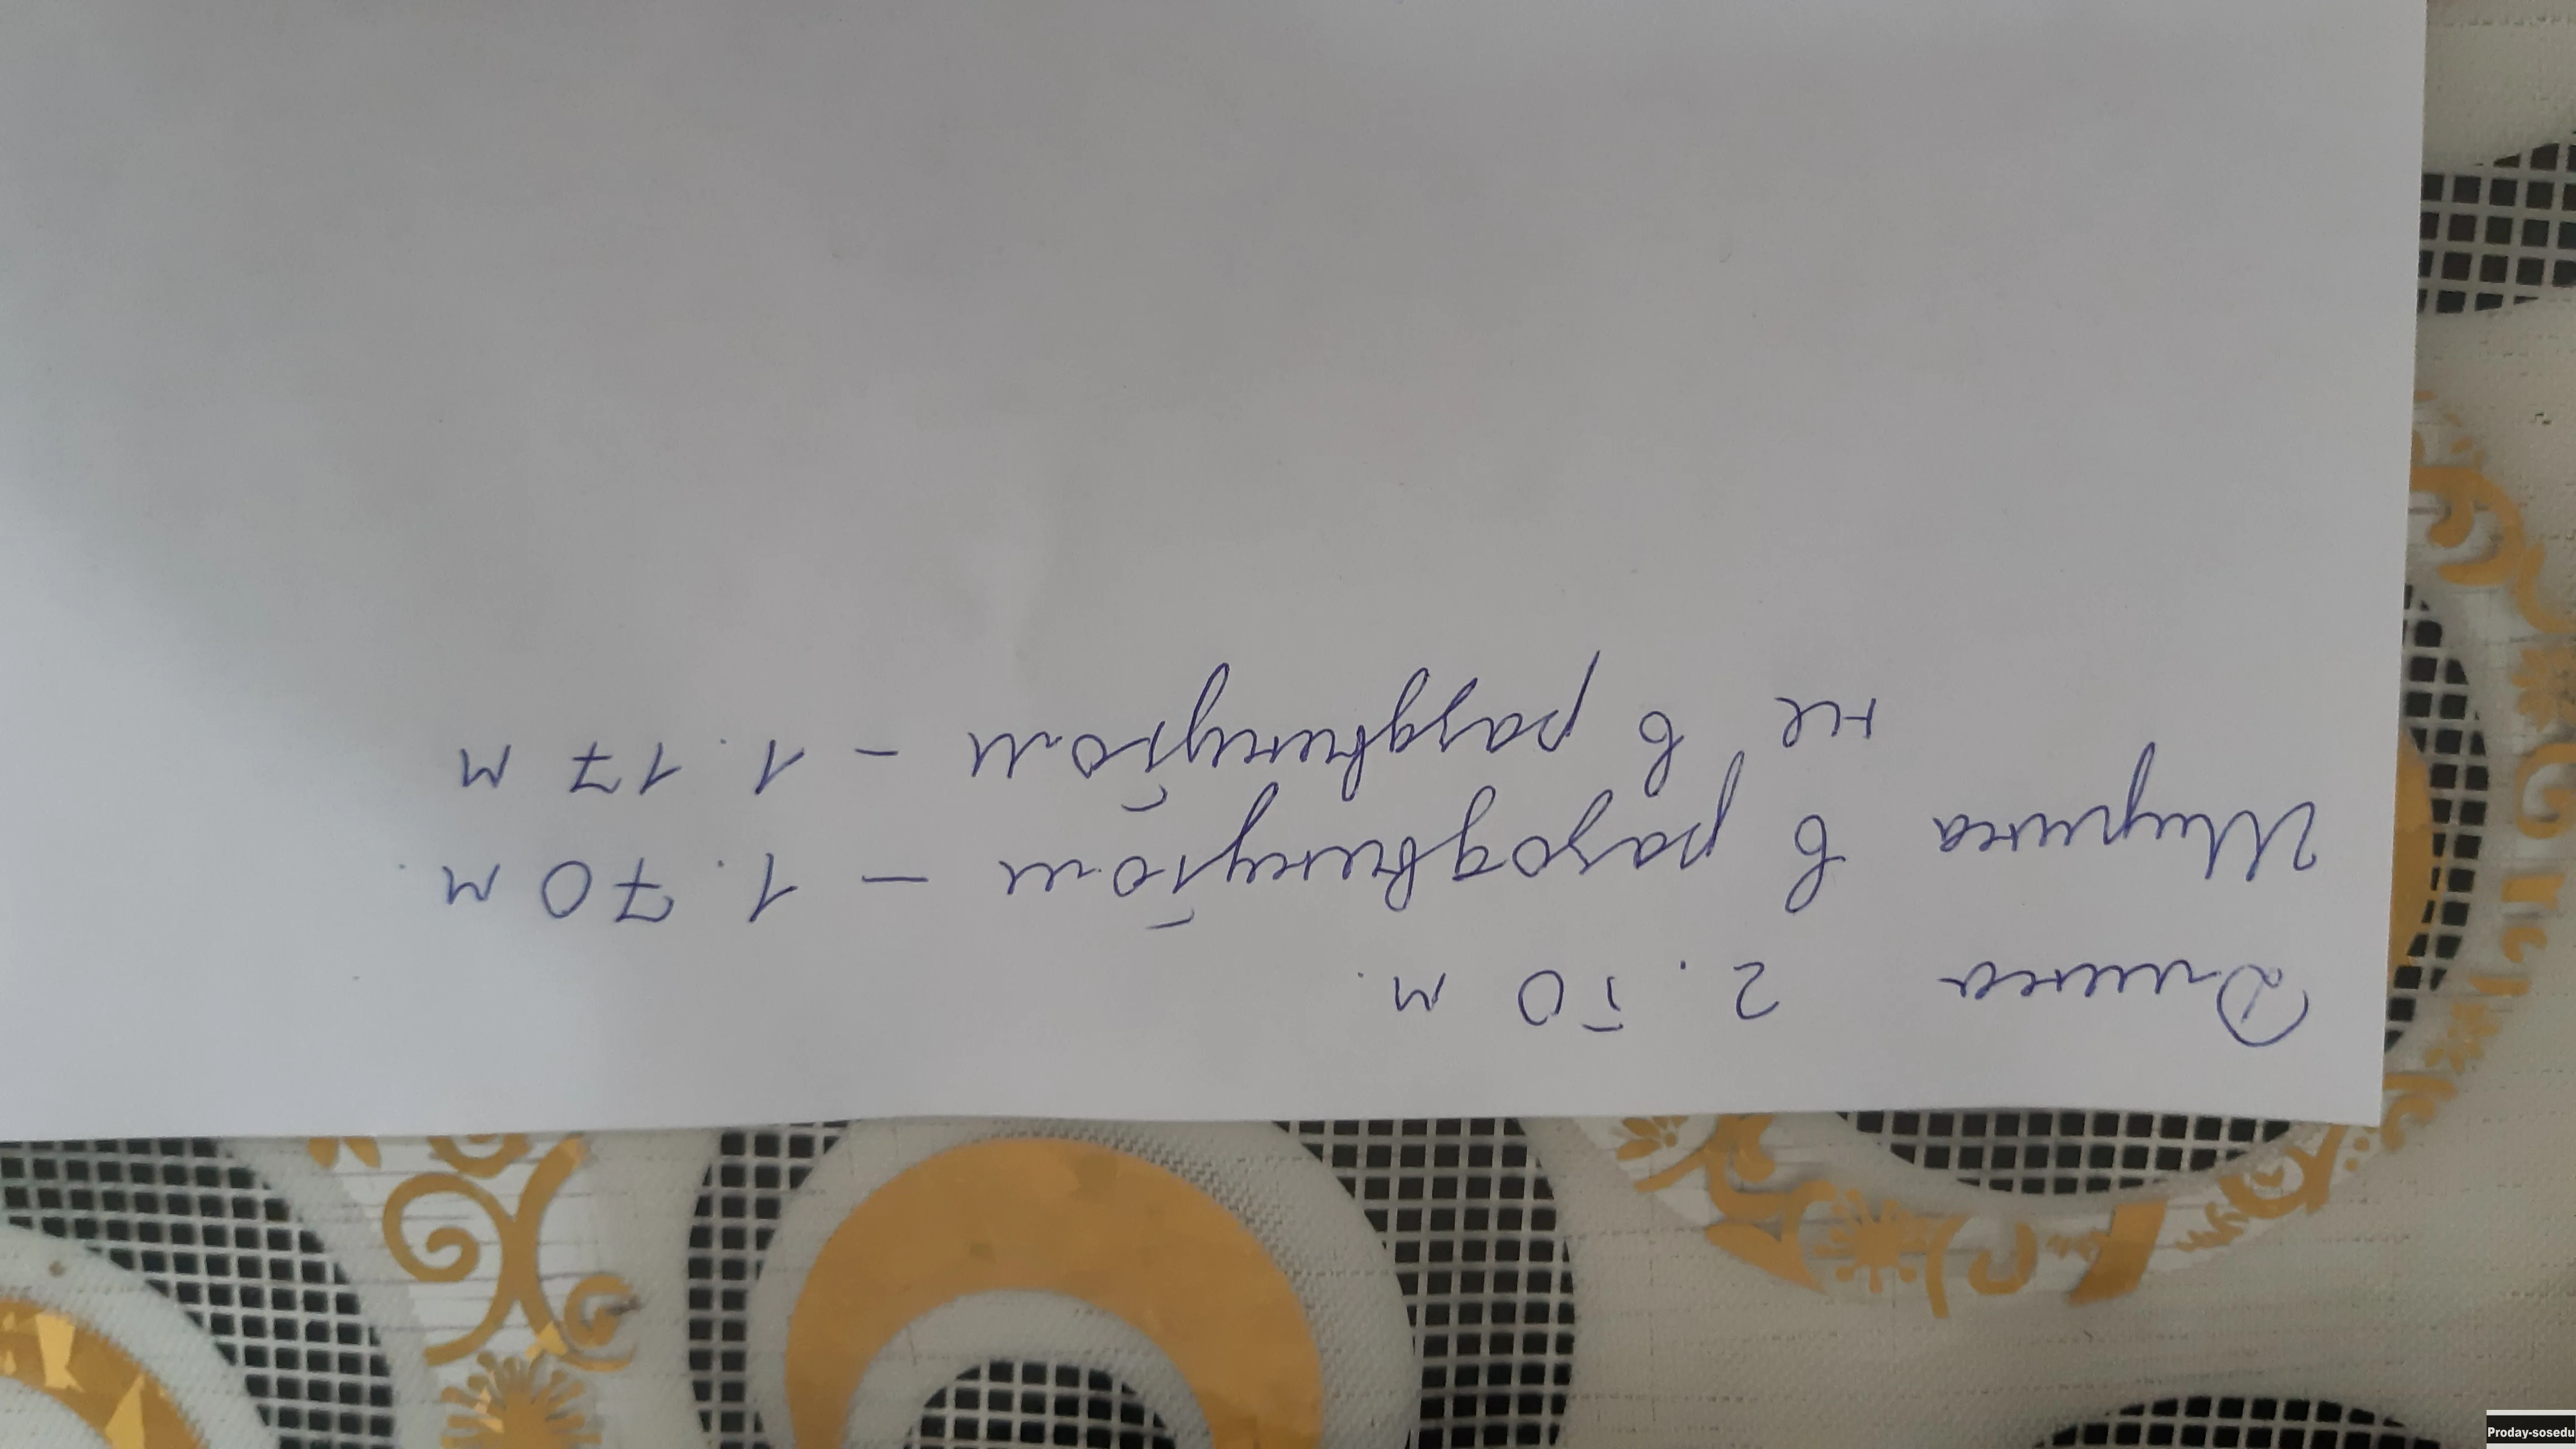 Длина 2.50 м.
Ширина в разодвинутом – 1.70 м.
не в раздвинутом – 1.17 м
Proday-sosedu